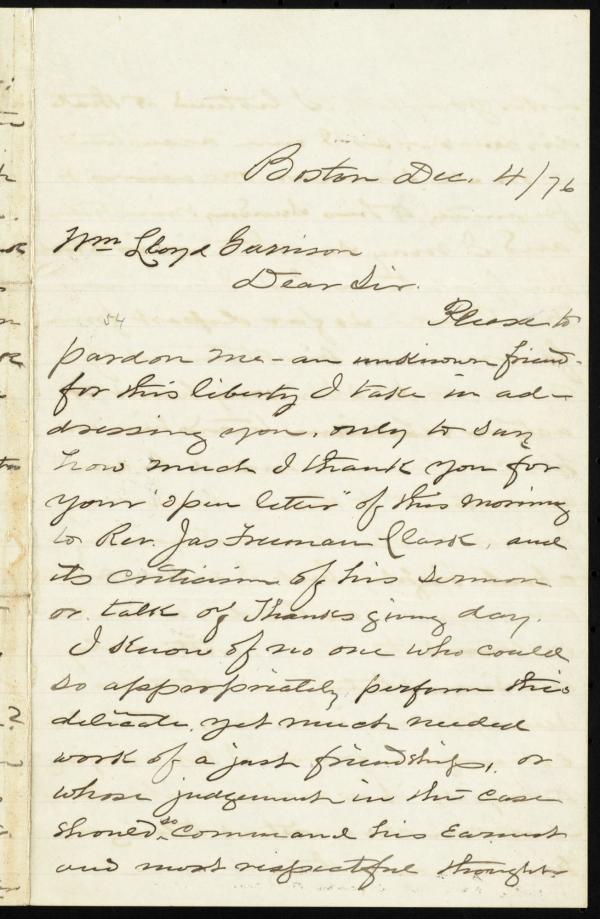 Boston Dec. 4/76
Wm Lloyd Garrison
Dear Sir.
54
Please to
pardon me - an unknown friend -
for this liberty I take in ad-
dressing you, only to say
how much I thank you for
your "open letter" of this morning
to Rev. Jas Freeman Clark, and
its criticism of his sermon
or talk of Thanksgiving day.
I know of no one who could
so appropriately perform this
delicate, yet much needed
work of a just friendship, or
whose judgement in the case
should so command his earnest
and most respectful thought